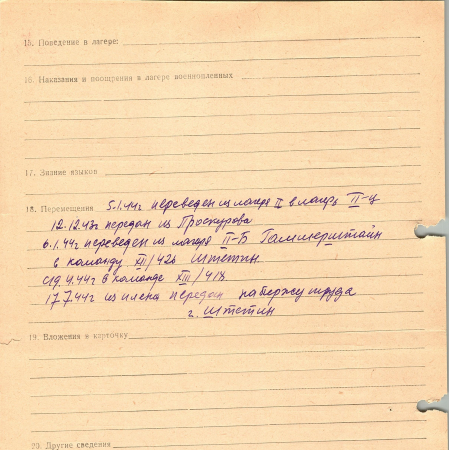 15. Поведение в лагере:
16. Наказания и поощрения в лагере военнопленных
17. Знание языков
18. Перемещения 5.1.44г переведен из лагеря II в лагерь II-Ц
12.12.43г передан из Проскурова
6.1.44г переведен из лагеря II-Б Гаммерштайн
в команду XII/425 Штеттин.
с 19.4.44г в команде XIII/418
17.7.44г из плена передан на биржу труда
г. Штетин
19. Вложения в карточку
20. Другие сведения